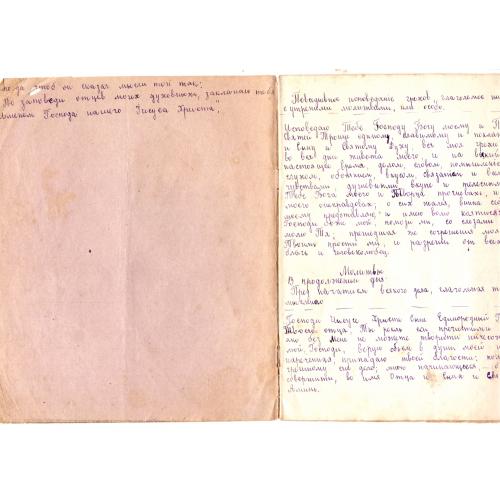 когда чтоб он сказал мысли той так:
"По заповеди отцев моих духовных, заклинаю тебя
Именем Господа нашего Иисуса Христа"
Повседневное исповедание грехов, глаголемое
с утренними молитвами, или особо.
Исповедаю Тебе Господу Богу моему и
Святей Троице единому, славимому и
и Сыну и Святому Духу, вся моя грехи
во вся дни живота моего, и на всякий
настоящее время, делом, словом, помышлением
слухом, обонянием, вкусом, осязанием и
чувствами, душевными вкупе и
Тебе Бога моего и Творца прогневах, и
моего онеправдовах; о сих жалея,
моему представляю, и имею волю каятися:
Господи Боже мой, помози ми, со слезами
молю Тя; прешедшая же согрешения моя
Твоим прости ми, и разреши от всех
благ и человеколюбец.
Молитвы
В продолжении дня
Пред начатием всякого дела, глаголемая
Господи Иисусе Христе Сыне Единородный
Твоего отца: Ты рекл еси пречистыми
яко без Мене не можете творити ничесоже
мой, Господи, верую объем в души моей и
реченная, припадаю твоей благости:
грешному сие дело, мною начинающееся, о
совершити, во имя Отца и Сына и
Аминь.